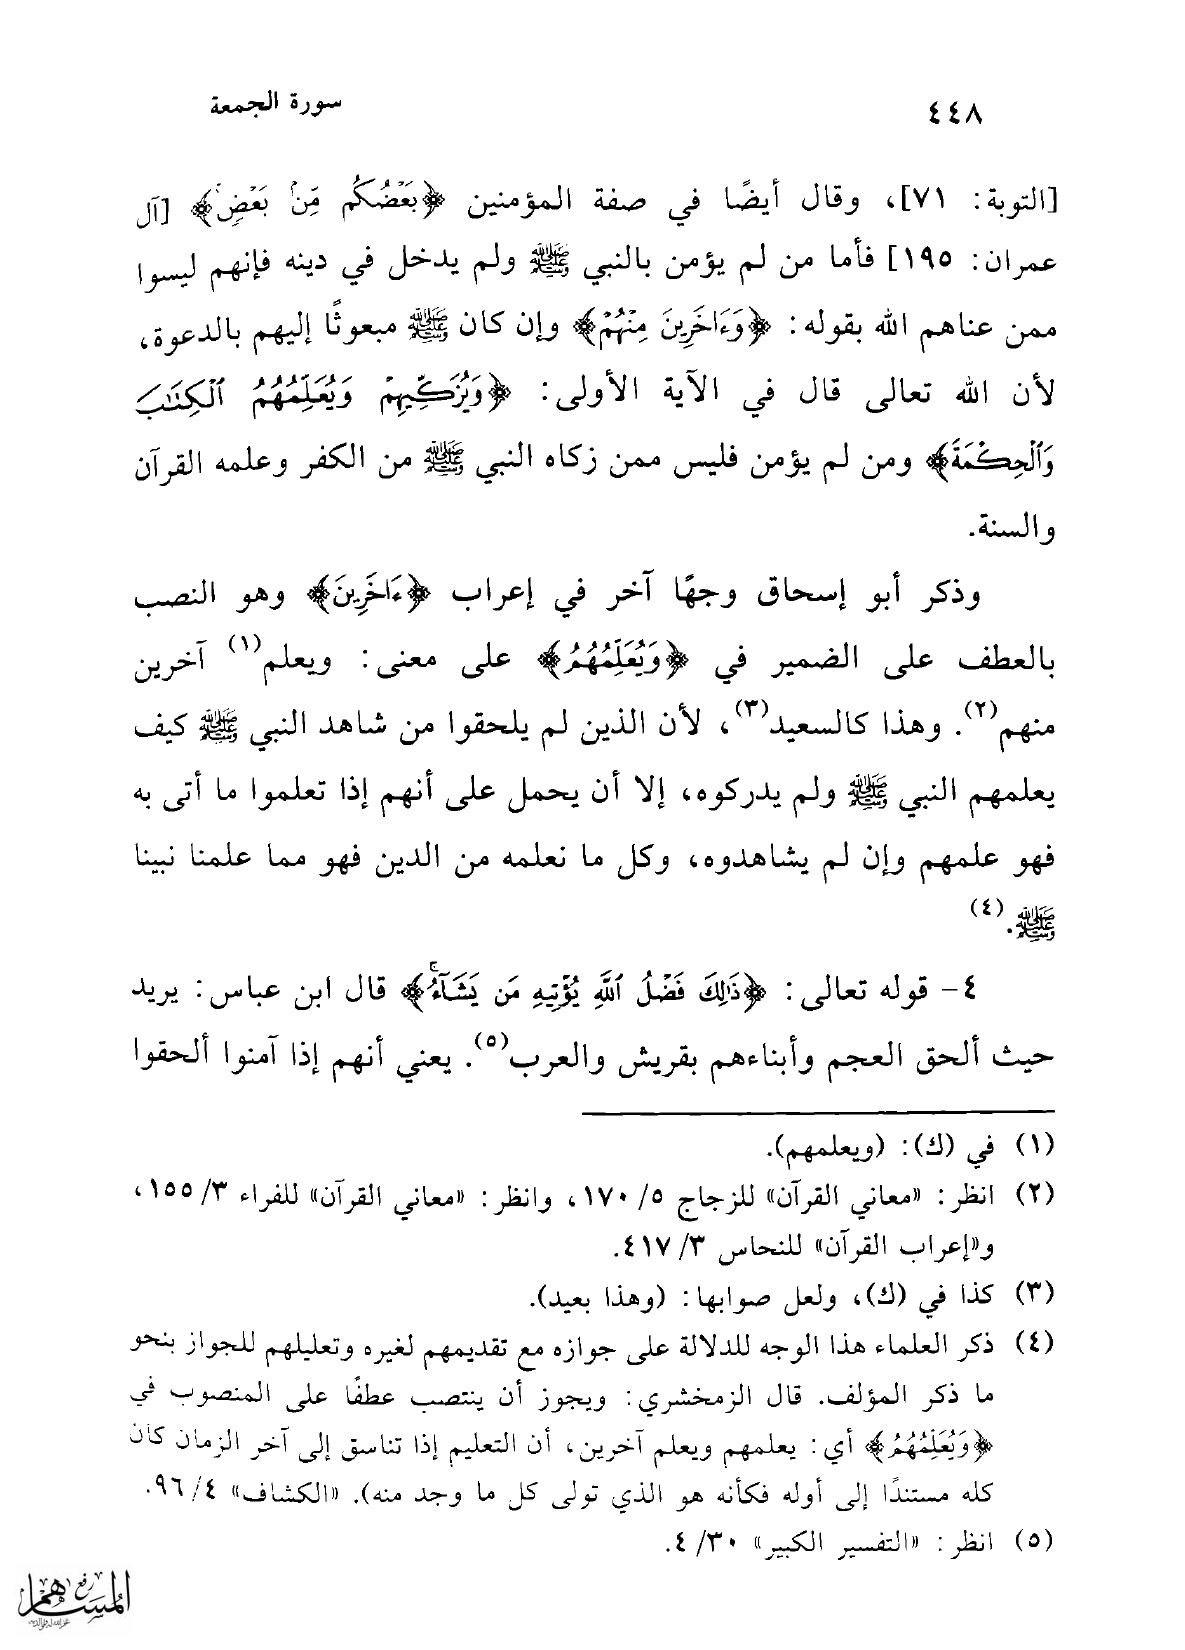 ٤٤٨
سورة الجمعة
[التوبة: ٧١]، وقال أيضًا في صفة المؤمنين ﴿بَعْضُكُم مِّنۢ بَعْضٍۖ﴾ [آل
عمران: ١٩٥] فأما من لم يؤمن بالنبي ﷺ ولم يدخل في دينه فإنهم ليسوا
ممن عناهم الله بقوله: ﴿وَءَاخَرِينَ مِنْهُمْ﴾ وإن كان ﷺ مبعوثًا إليهم بالدعوة،
لأن الله تعالى قال في الآية الأولى: ﴿وَيُزَكِّيهِمْ وَيُعَلِّمُهُمُ ٱلْكِتَٰبَ
وَٱلْحِكْمَةَ﴾ ومن لم يؤمن فليس ممن زكاه النبي ﷺ من الكفر وعلمه القرآن
والسنة.
وذكر أبو إسحاق وجهًا آخر في إعراب ﴿ءَاخَرِينَ﴾ وهو النصب
بالعطف على الضمير في ﴿وَيُعَلِّمُهُمُ﴾ على معنى: ويعلم(١) آخرين
منهم(٢). وهذا كالسعيد(٣)، لأن الذين لم يلحقوا من شاهد النبي ﷺ كيف
يعلمهم النبي ﷺ ولم يدركوه، إلا أن يحمل على أنهم إذا تعلموا ما أتى به
فهو علمهم وإن لم يشاهدوه، وكل ما نعلمه من الدين فهو مما علمنا نبينا
ﷺ.(٤)
٤- قوله تعالى: ﴿ذَٰلِكَ فَضْلُ ٱللَّهِ يُؤْتِيهِ مَن يَشَآءُۚ﴾ قال ابن عباس: يريد
حيث ألحق العجم وأبناءهم بقريش والعرب(٥). يعني أنهم إذا آمنوا ألحقوا
(١) في (ك): (ويعلمهم).
(٢) انظر: «معاني القرآن» للزجاج ٥/ ١٧٠، وانظر: «معاني القرآن» للفراء ٣/ ١٥٥،
و«إعراب القرآن» للنحاس ٣/ ٤١٧.
(٣) كذا في (ك)، ولعل صوابها: (وهذا بعيد).
(٤) ذكر العلماء هذا الوجه للدلالة على جوازه مع تقديمهم لغيره وتعليلهم للجواز بنحو
ما ذكر المؤلف. قال الزمخشري: ويجوز أن ينتصب عطفًا على المنصوب في
﴿وَيُعَلِّمُهُمُ﴾ أي: يعلمهم ويعلم آخرين، أن التعليم إذا تناسق إلى آخر الزمان كان
كله مستندًا إلى أوله فكأنه هو الذي تولى كل ما وجد منه). «الكشاف» ٤/ ٩٦.
(٥) انظر: «التفسير الكبير» ٣٠/ ٤.